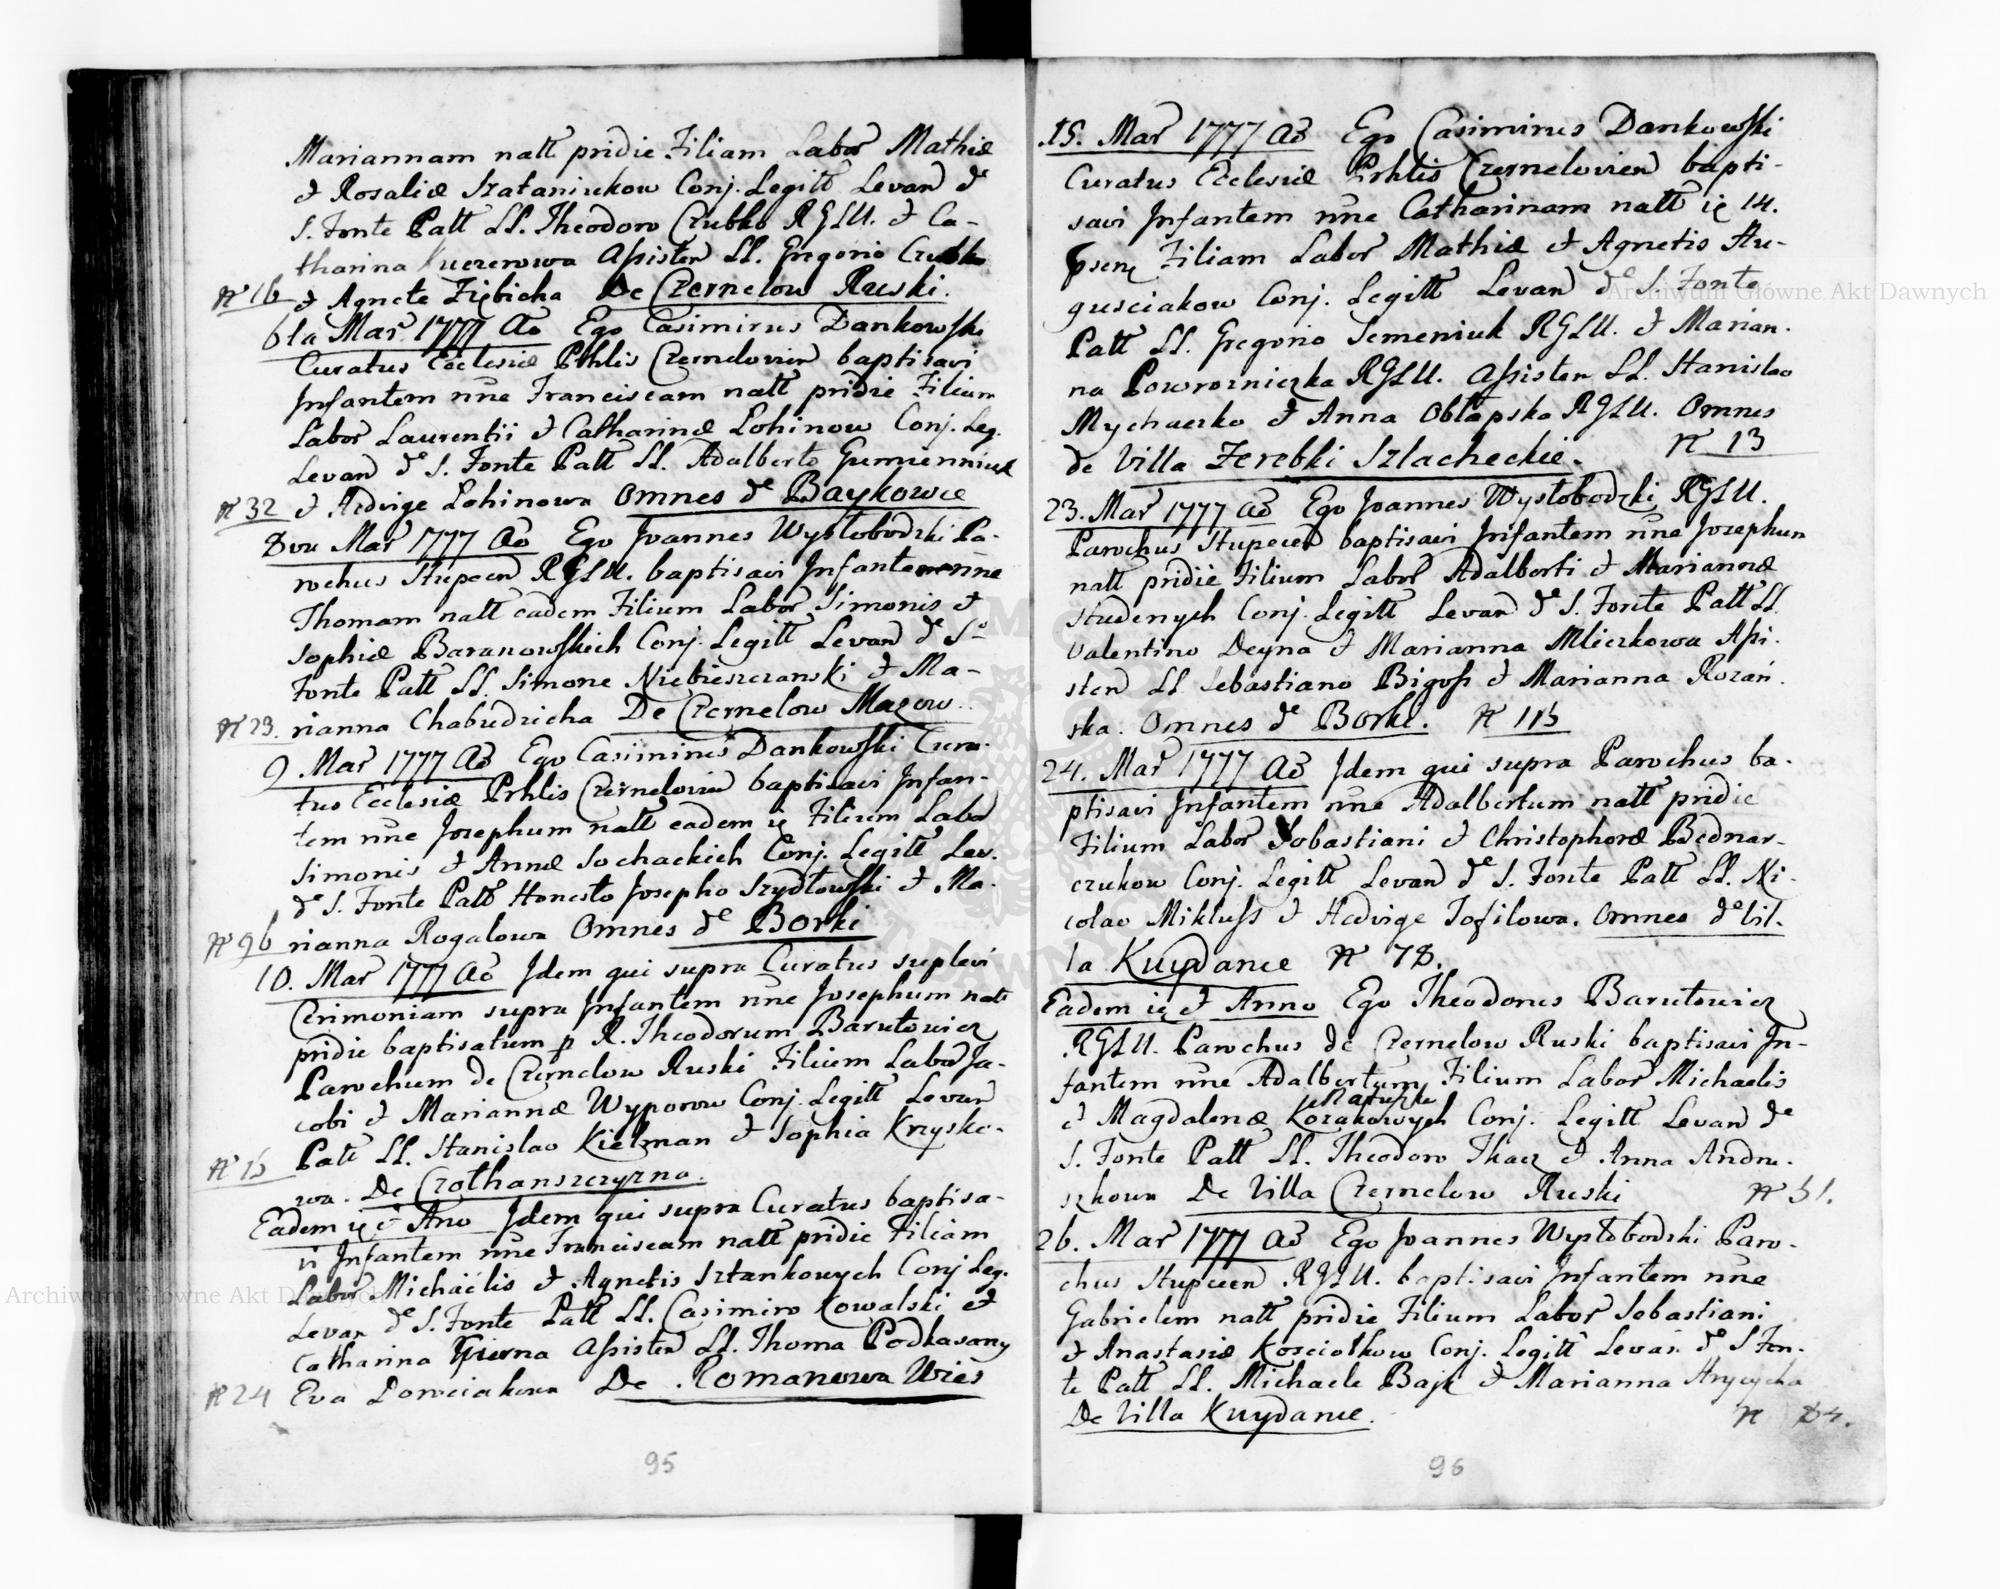 Mariannam natt pridie Filiam Labor Mathiæ
& Rosaliæ Szataniukow Conj. Legitt Levan de
S. Fonte Patt LL. Theodoro Czubko RGLU. & Ca-
tharina Assisten LL. Gregorio Czubko
N 16 & Agnete Ziębicha De Czernelow Ruski.
6ta Mar 1777 Ao Ego Casimirus Dankowski
Curatus Ecclesiæ Prhlis Czernelovien baptisavi
Infantem nne Franciscam natt pridie Filiam
Labor Laurentii & Catharinæ Lohinow Conj. Leg.
Levan de S. Fonte Patt LL. Adalberto Gumienniuk
N 32 & Hedvige Lohinowa Omnes de Baykowce
8va Mar 1777 Ao Ego Joannes Wysłobodzki Pa-
rochus Stupcen RGLU. baptisavi Infantem nne
Thomam natt eadem Filium Labor Simonis &
Sophiæ Baranowskich Conj. Legitt Levan de So
Fonte Patt LL. Simone Niebieszczanski & Ma-
N 23. rianna Chabudzicha De Czernelow Mazow.
9 Mar 1777 Ao Ego Casimirus Dankowski Cura-
tus Ecclesiæ Prhlis Czernelovien baptisavi Infan-
tem nne Josephum natt eadem ię Filium Labor
Simonis & Annæ Sochackich Conj. Legitt Lev.
de S. Fonte Patt Honesto Josepho Szydłowski & Ma-
N 96 rianna Rogalowa Omnes de Borki
10. Mar 1777 Ao Idem qui supra Curatus suplevi
Cerimoniam supra Infantem nne Josephum natt
pridie baptisatum p R. Theodorum Barutowicz
Parochum de Czernelow Ruski Filium Labor Ja-
cobi & Mariannæ Wyporow Conj. Legitt Levan
Patt LL. Stanislao Kielzman & Sophia Krzysko-
N 15 wa. De Czothanszczyzna.
Eadem ię & Ano Idem qui supra Curatus baptisa-
vi Infantem nne Franciscam natt pridie Filiam
Labor Michaëlis & Agnetis Sztankowych Conj Leg.
Levan de S. Fonte Patt LL. Casimiro Kowalski et
Catharina Assisten LL. Thoma Podkasany
N 24 Eva De Romanowa Wies
95
15. Mar 1777 Ao Ego Casimirus Dankowski
Curatus Ecclesiæ Prhlis Czernelovien bapti-
savi Infantem nne Catharinam natt ię 14.
psenę Filiam Labor Mathiæ & Agnetis Au-
gusciakow Conj. Legitt Levan de S. Fonte
Patt LL. Gregorio Semeniuk RGLU. & Marian-
na Powrozniczka RGLU. Assisten LL. Stanislao
Mychaezko & Anna Obłapska RGLU. Omnes
de Villa Zerebki Szlacheckie. N 13
23. Mar 1777 Ao Ego Joannes Wysłobodzki RGLU.
Parochus Stupecen baptisavi Infantem nne Josephum
natt pridie Filium Labor Adalberti & Mariannæ
Studenych Conj. Legitt Levan de S. Fonte Patt LL.
Valentino Deyna & Marianna Mleczkowa Assi-
sten LL Sebastiano Bigoss & Marianna Rozań-
ska. Omnes de Borki. N 115
24. Mar 1777 Ao Idem qui supra Parochus ba-
ptisavi Infantem nne Adalbertum natt pridie
Filium Labor Sobastiani & Christophoræ Bednar-
czukow Conj. Legitt Levan de S. Fonte Patt LL. Ni-
colao Mikluss & Hedvige Tofilowa. Omnes de Vil-
la Kuydance N 78.
Eadem ię & Anno Ego Theodorus Barutowicz
RGLU. Parochus de Czernelow Ruski baptisavi In-
fantem nne Adalbertum Filium Labor Michaelis
& Magdalenæ Kozakowych Conj. Legitt Levan de
S. Fonte Patt LL. Theodoro Tkacz & Anna Andru-
szkowa De Villa Czernelow Ruski N 51.
26. Mar 1777 Ao Ego Joannes Wysłobodzki Paro-
chus Stupcen RGLU. baptisavi Infantem nne
Gabrielem natt pridie Filium Labor Sebastiani
& Anastasiæ Kosciołkow Conj. Legitt Levan de S Fon-
te Patt LL. Michaele Bajk & Marianna Hrycycha
De Villa Kuydance. N 84.
96
Archiwum Główne Akt Dawnych
Archiwum Główne Akt Dawnych